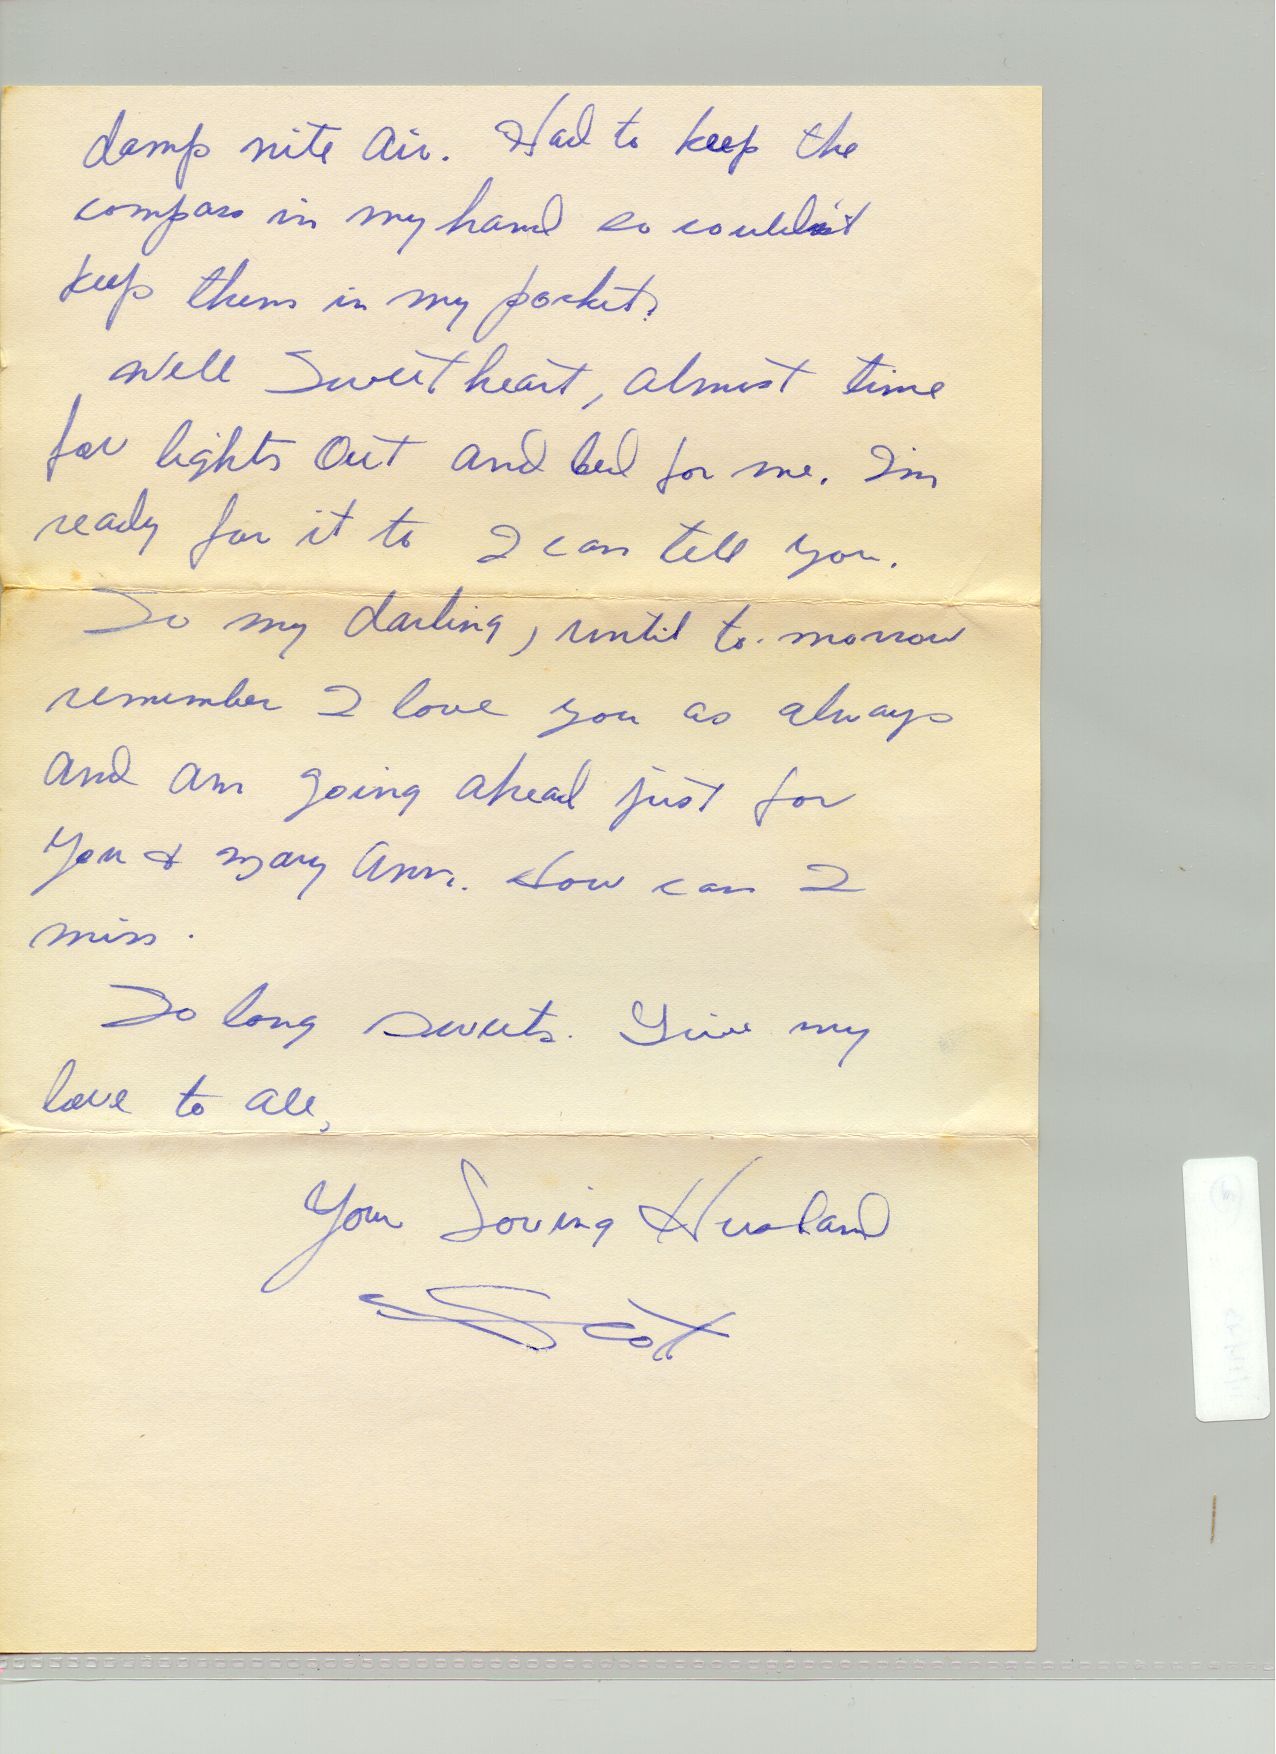 damp nite air. Had to keep the
compass in my hand so couldn't
keep them in my pockets.
Well Sweetheart, almost time
for lights out and bed for me. I'm
ready for it to I can tell you.
So my darling, until to-morrow
remember I love you as always
and am going ahead just for
you & Mary Ann. How can I
miss.
So long sweets. Give my
love to all,
Your Loving Husband
Scot